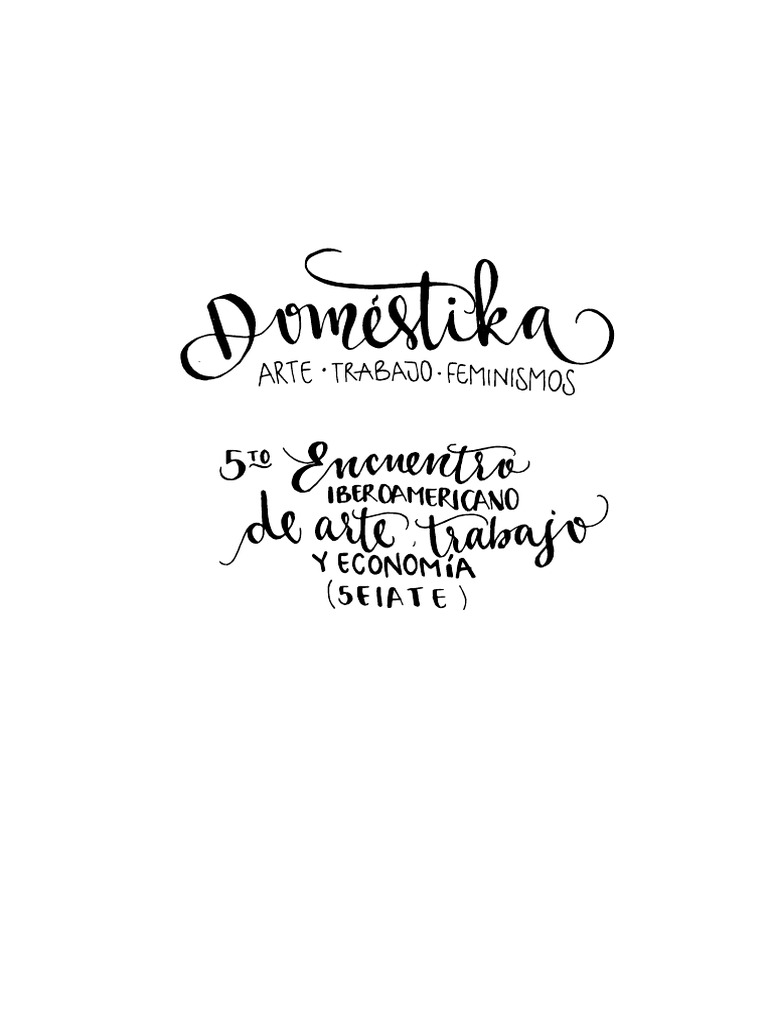 Doméstika
ARTE · TRABAJO · FEMINISMOS
5TO Encuentro
IBEROAMERICANO
de arte, trabajo
Y ECONOMÍA
(5EIATE)